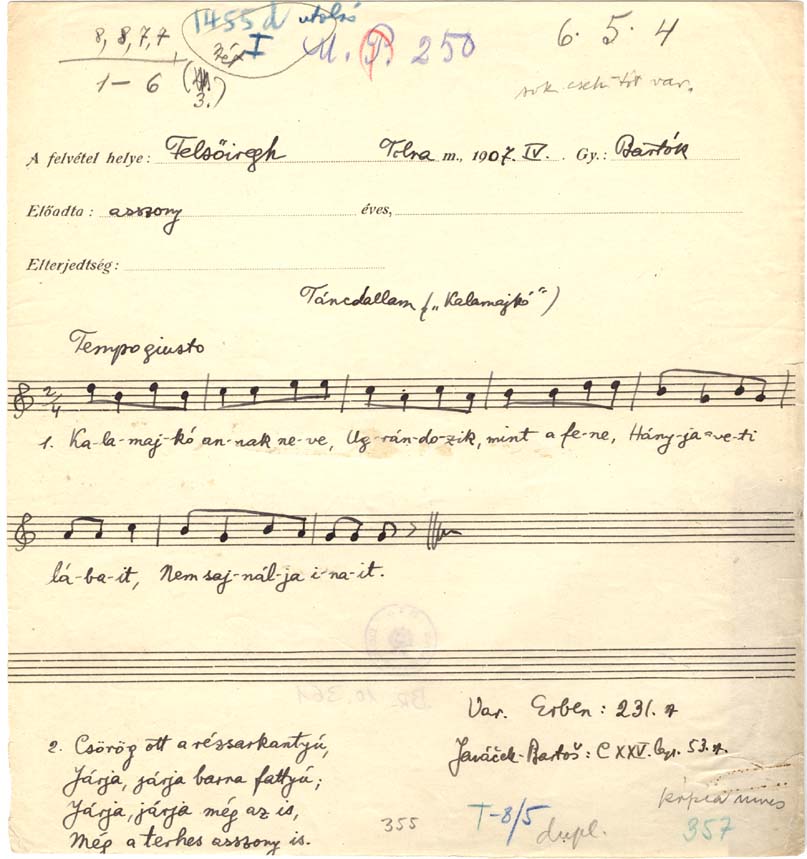 8, 8, 7, 7
1 – 6
3.
1455 d utolsó
I
M. P. 250
6 · 5 · 4
sok cseh-tót var.
A felvétel helye: Felsőiregh Tolna m., 1907. IV. Gy.: Bartók
Előadta: asszony éves,
Elterjedtség:
Táncdallam („Kalamajkó“)
Tempo giusto
2/4
1. Ka-la-maj-kó an-nak ne-ve, Ug-rán-do-zik, mint a fe-ne, Hány-ja-ve-ti
lá-ba-it, Nem saj-nál-ja i-na-it.
Var. Erben: 231.
Janáček-Bartoš: CXXV. lap. 53.
2. Csörög ott a rézsarkantyú,
Járja, járja barna fattyú;
Járja, járja még az is,
Még a terhes asszony is.
355
T-8/5
dupl.
kópia nincs
357